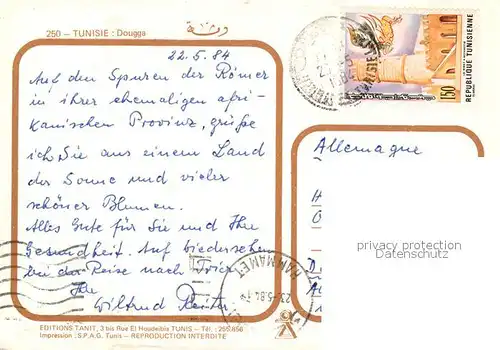 250 – TUNISIE : Dougga
دقة
22.5.84
Auf den Spuren der Römer
in ihrer ehemaligen afri-
kanischen Provinz, grüße
ich Sie aus einem Land
der Sonne und vieler
schöner Blumen.
Alles Gute für Sie und Ihre
Gesundheit. Auf Wiedersehen
bei der Reise nach Trier
Ihr
Wiltrud
EDITIONS TANIT, 3 bis Rue El Houdeibis TUNIS – Tél. : 255.656
Impression : S.P.A.G. Tunis – REPRODUCTION INTERDITE
REPUBLIQUE TUNISIENNE
150
Allemagne
privacy protection
Datenschutz
HAMMAMET
23.5.84